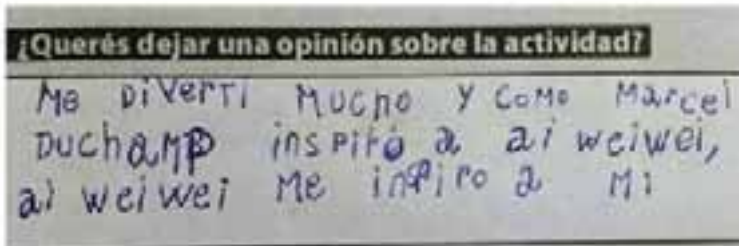 ¿Querés dejar una opinión sobre la actividad?
Me DiVerTi Mucho y como Marcel
Duchamp inspiró a ai weiwei,
ai weiwei Me inspiro a Mi